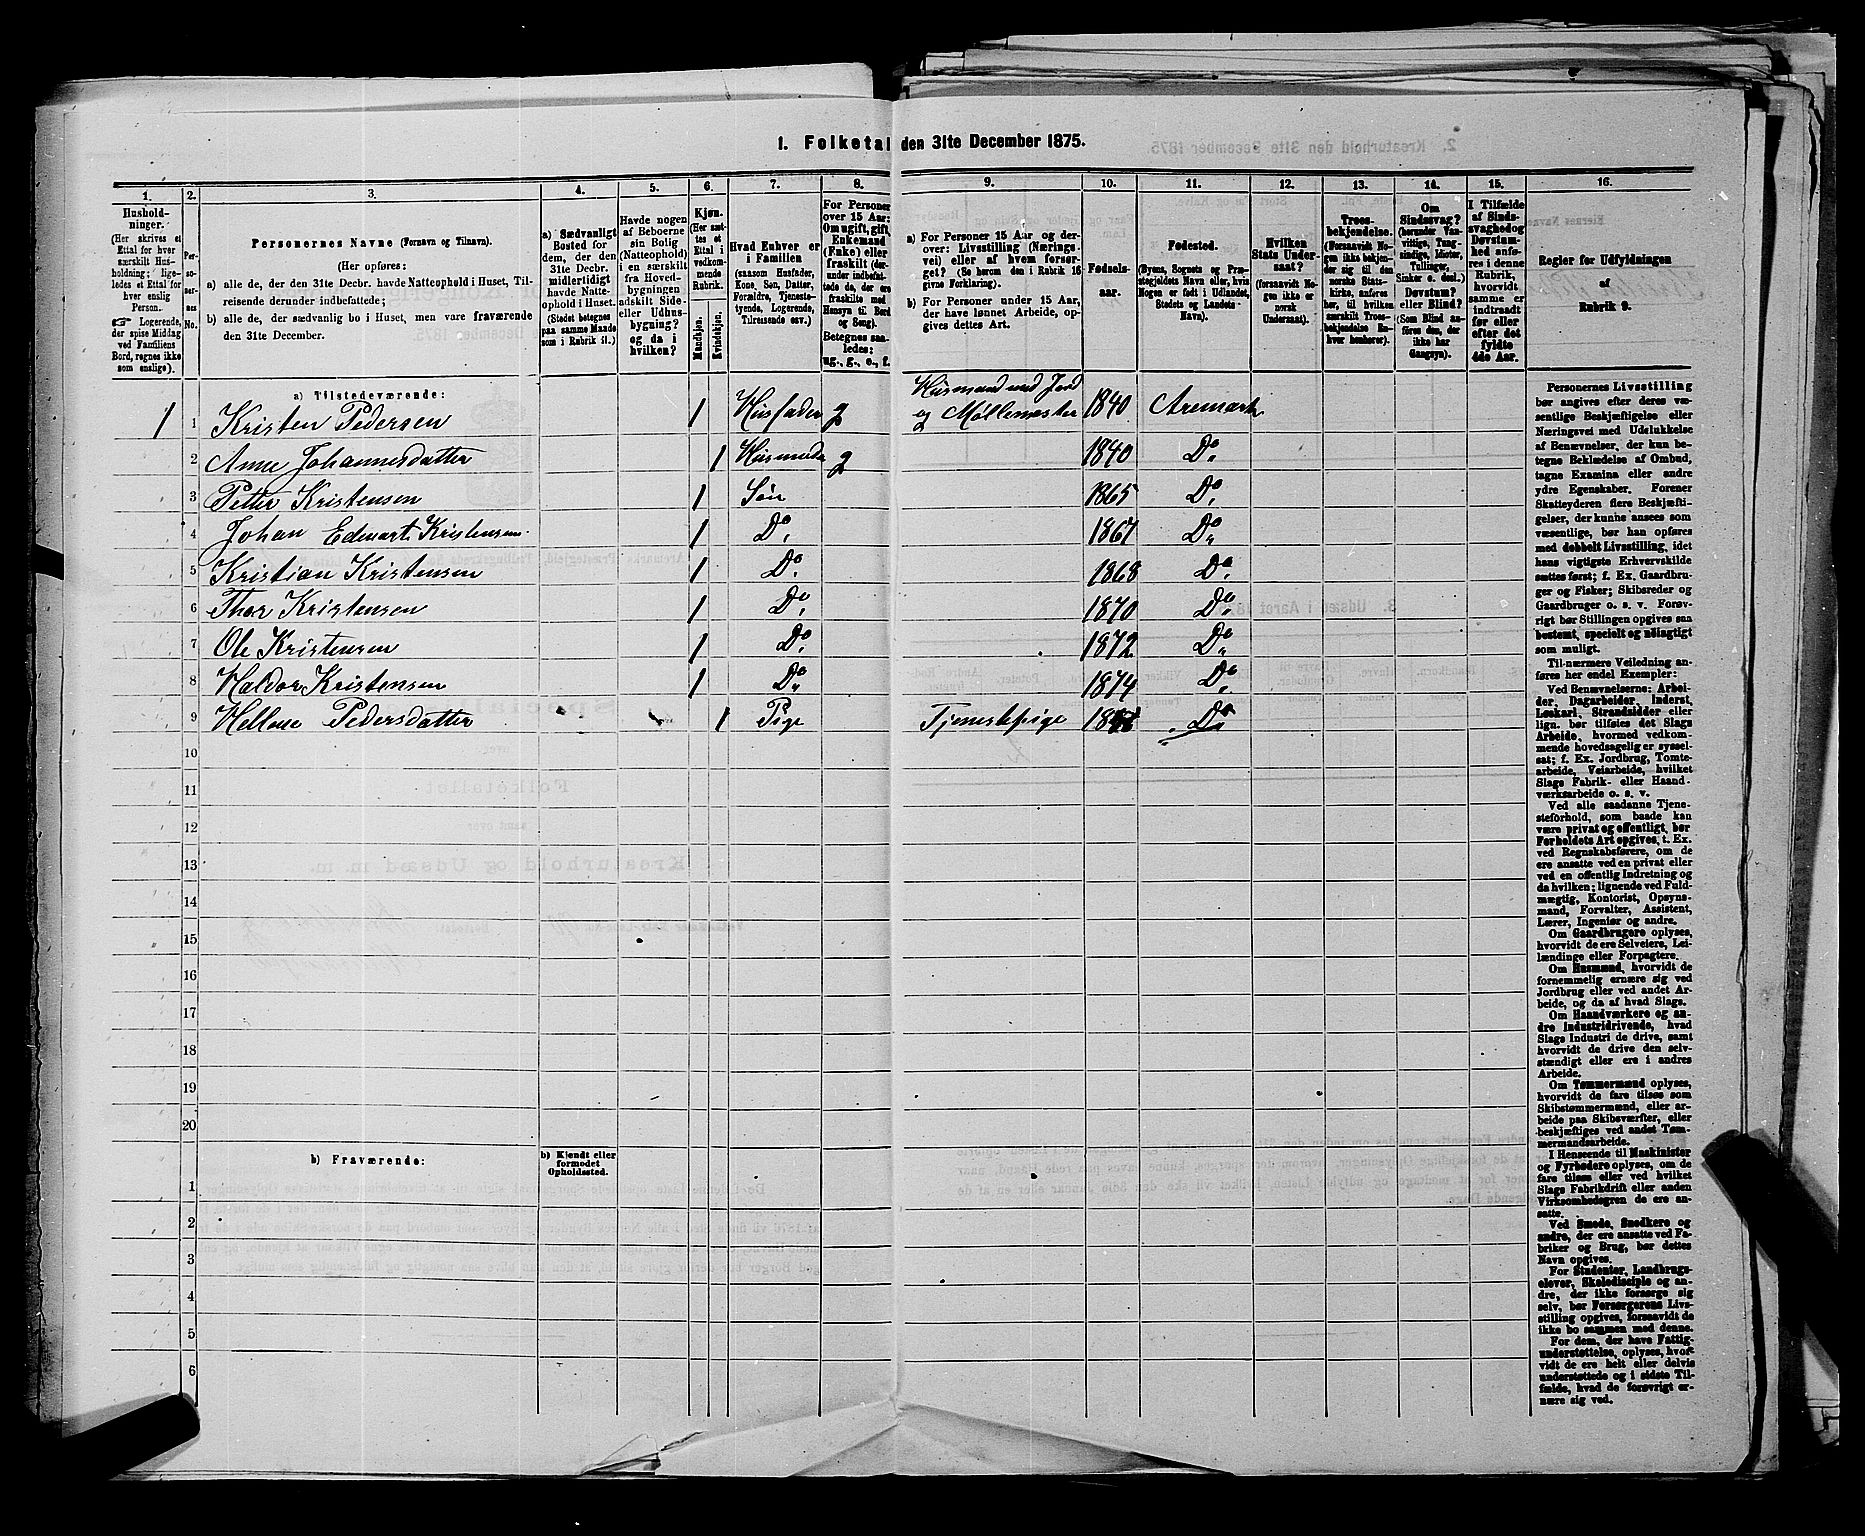 1. Folketal den 31te December 1875.
1. 2. 3. 4. 5. 6. 7. 8. 9. 10. 11. 12. 13. 14. 15. 16.
Hushold-
ninger.
(Her skrives et
Ettal for hver
særskilt Hus-
holdning; lige-
ledes et Ettal for
hver enslig
Person.
☞ Logerende,
der spise Middag
ved Familiens
Bord, regnes ikke
som enslige).
Per-
so-
ner-
nes
No.
Personernes Navne (Fornavn og Tilnavn).
(Her opføres:
a) alle de, der den 31te Decbr. havde Natteophold i Huset, Til-
reisende derunder indbefattede;
b) alle de, der sædvanlig bo i Huset, men vare fraværende
den 31te December.
a) Sædvanligt
Bosted for
dem, der den
31te Decbr.
midlertidigt
havde Natte-
ophold i Huset.
(Stedet betegnes
paa samme Maade
som i Rubrik 11.)
Havde nogen
af Beboerne
sin Bolig
(Natteophold)
i en særskilt
fra Hoved-
bygningen
adskilt Side-
eller Udhus-
bygning?
og da i
hvilken?
Kjøn.
(Her sæt-
tes et
Ettal i
vedkom-
mende
Rubrik.
Mandkjøn.
Kvindekjøn.
Hvad Enhver er
i Familien
(saasom Husfader,
Kone, Søn, Datter,
Forældre, Tjeneste-
tyende, Logerende,
Tilreisende osv.)
For Personer
over 15 Aar:
Om ugift, gift,
Enkemand
(Enke) eller
fraskilt (der-
under indbefat-
tede de, der ere
fraskilte med
Hensyn til Bord
og Seng).
Betegnes saa-
ledes:
ug., g., e., f.
a) For Personer 15 Aar og der-
over: Livsstilling (Nærings-
vei) eller af hvem forsør-
get? (Se herom den i Rubrik 16
givne Forklaring).
b) For Personer under 15 Aar,
der have lønnet Arbeide, op-
gives dettes Art.
Fødsels-
aar.
Fødested.
(Byens, Sognets og Præ-
stegjeldets Navn eller, hvis
Nogen er født i Udlandet,
Stedets og Landets
Navn).
Hvilken
Stats Under-
saat?
(forsaavidt No-
gen ikke er
norsk
Undersaat).
Troes-
bekjendelse.
(Forsaavidt No-
gen ikke bekjen-
der sig til den
norske Stats-
kirke, anføres
her, til hvilken
særskilt Troes-
bekjendelse En-
hver henhører).
Om
Sindssvag?
(herunder Van-
vittige, Tung-
sindige, Idioter,
Tullinger,
Sinker o. desl.)
Døvstum?
eller Blind?
(Som Blind an-
føres den, der
ikke har
Gangsyn).
I Tilfælde
af Sinds-
svaghed og
Døvstum-
hed anfø-
res i denne
Rubrik,
hvorvidt
samme er
indtraadt
før eller
efter det
fyldte
4de Aar.
Regler for Udfyldningen
af
Rubrik 9.
a) Tilstedeværende:
1 1 Kristen Pedersen 1 Husfader g Husmand med Jord
og Møllemester 1840 Aremark
2 Anne Johannesdatter 1 Husmoder g 1840 Do
3 Petter Kristensen 1 Søn 1865 Do
4 Johan Edvart Kristensen 1 Do 1867 Do
5 Kristian Kristensen 1 Do 1868 Do
6 Thor Kristensen 1 Do 1870 Do
7 Ole Kristensen 1 Do 1872 Do
8 Haldor Kristensen 1 Do 1874 Do
9 Hellene Pedersdatter 1 Pige Tjenestepige Do
10
11
12
13
14
15
16
17
18
19
20
b) Fraværende:
b) Kjendt eller
formodet
Opholdssted.
1
2
3
4
5
6
Personernes Livsstilling
bør angives efter deres væ-
sentlige Beskjæftigelse eller
Næringsvei med Udelukkelse
af Benævnelser, der kun be-
tegne Beklædelse af Ombud,
tagne Examina eller andre
ydre Egenskaber. Forener
Skatteyderen flere Beskjæfti-
gelser, der kunne ansees som
væsentlige, bør han opføres
med dobbelt Livsstilling, idet
hans vigtigste Erhvervskilde
sættes først; f. Ex. Gaardbru-
ger og Fisker; Skibsreder og
Gaardbruger o. s. v. Forøv-
rigt bør Stillingen opgives saa
bestemt, specielt og nöiagtigt
som muligt.
Til nærmere Veiledning an-
føres her endel Exempler:
Ved Benævnelserne: Arbei-
der, Dagarbeider, Inderst,
Løskarl, Strandsidder eller
lign. bør tilføies det Slags
Arbeide, hvormed vedkom-
mende hovedsagelig er syssel-
sat; f. Ex. Jordbrug, Tomte-
arbeide, Veiarbeide, hvilket
Slags Fabrik- eller Haand-
værksarbeide o. s. v.
Ved alle saadanne Tjene-
steforhold, som baade kan
være privat og offentligt, bør
Forholdets Art opgives, t. Ex.
ved Regnskabsførere, om de
ere ansatte ved en privat eller
ved en offentlig Indretning og
da hvilken; lignende ved Fuld-
mægtig, Kontorist, Opsyns-
mand, Forvalter, Assistent,
Lærer, Ingeniør og andre.
Om Gaardbrugere oplyses,
hvorvidt de ere Selveiere, Lei-
lændinge eller Forpagtere.
Om Husmænd, hvorvidt de
fornemmelig ernære sig ved
Jordbrug eller ved andet Ar-
beide, og da af hvad Slags.
Om Haandværkere og an-
dre Industridrivende, hvad
Slags Industri de drive, samt
hvorvidt de drive den selv-
stændigt eller ere i andres
Arbeide.
Om Tømmermænd oplyses,
hvorvidt de fare tilsøs som
Skibstømmermænd, eller ar-
beide paa Skibsværfter, eller
beskjæftiges ved andet Tøm-
mermandsarbeide.
I Henseende til Maskinister
og Fyrbødere oplyses, om de
fare tilsøs eller ved hvilket
Slags Fabrikdrift eller anden
Virksomhedsgren de ere an-
satte.
Ved Smede, Snedkere og
andre, der ere ansatte ved Fa-
briker og Brug, bør dettes
Navn opgives.
For Studenter, Landbrugs-
elever, Skoledisciple og an-
dre, der ikke forsørge sig
selv, bør Forsørgerens Livs-
stilling opgives, forsaavidt de
ikke bo sammen med denne.
For dem, der have Fattig-
understøttelse, oplyses, hvor-
vidt de ere helt eller delvis
understøttede og i sidste Til-
fælde, hvad de forøvrigt er-
nære sig ved.